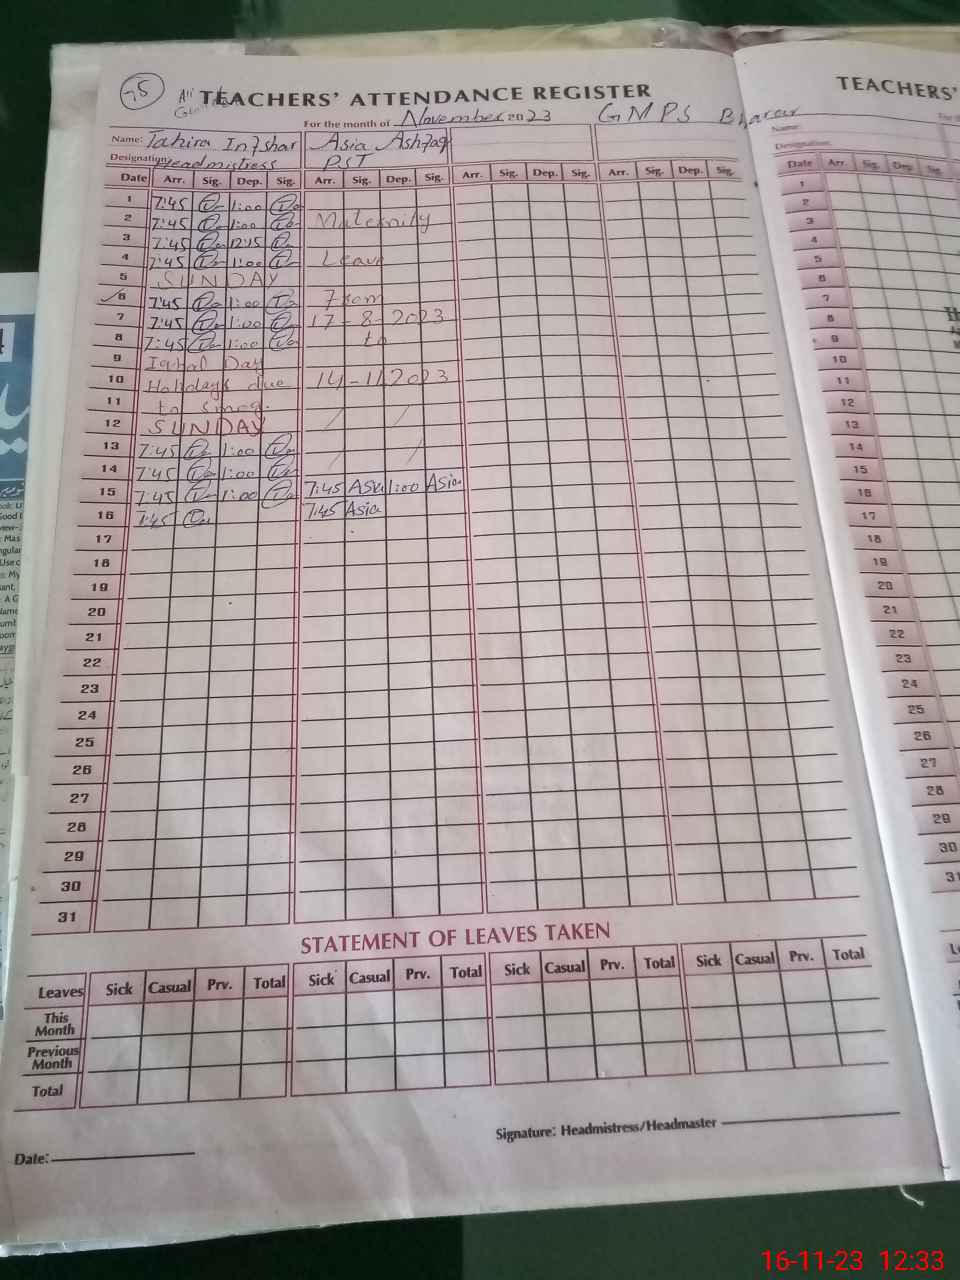 75
TEACHERS' ATTENDANCE REGISTER
TEACHERS'
For the month of November 2023 GMPS Bharar
Name: Tahira Infshar Asia Ashfaq
Name:
Designation: Headmistress PST
Designation:
Date Arr. Sig. Dep. Sig. Arr. Sig. Dep. Sig. Arr. Sig. Dep. Sig. Arr. Sig. Dep. Sig.
Date Arr. Sig. Dep. Sig.
1 7:45 1:00
2 7:45 1:00 Maternity
3 7:45 12:15
4 7:45 1:00 Leave
5 SUNDAY
6 7:45 1:00 From
7 7:45 1:00 17-8-2023
8 7:45 1:00 to
9 Iqbal Day
10 Holidays due 14-11-2023
11 to smog.
12 SUNDAY
13 7:45 1:00
14 7:45 1:00
15 7:45 1:00 7:45 Asia 1:00 Asia
16 7:45 7:45 Asia
17
18
19
20
21
22
23
24
25
26
27
28
29
30
31
1
2
3
4
5
6
7
8
9
10
11
12
13
14
15
16
17
18
19
20
21
22
23
24
25
26
27
28
29
30
31
STATEMENT OF LEAVES TAKEN
Leaves Sick Casual Prv. Total Sick Casual Prv. Total Sick Casual Prv. Total Sick Casual Prv. Total
This Month
Previous Month
Total
Signature: Headmistress/Headmaster
Date:
16-11-23 12:33